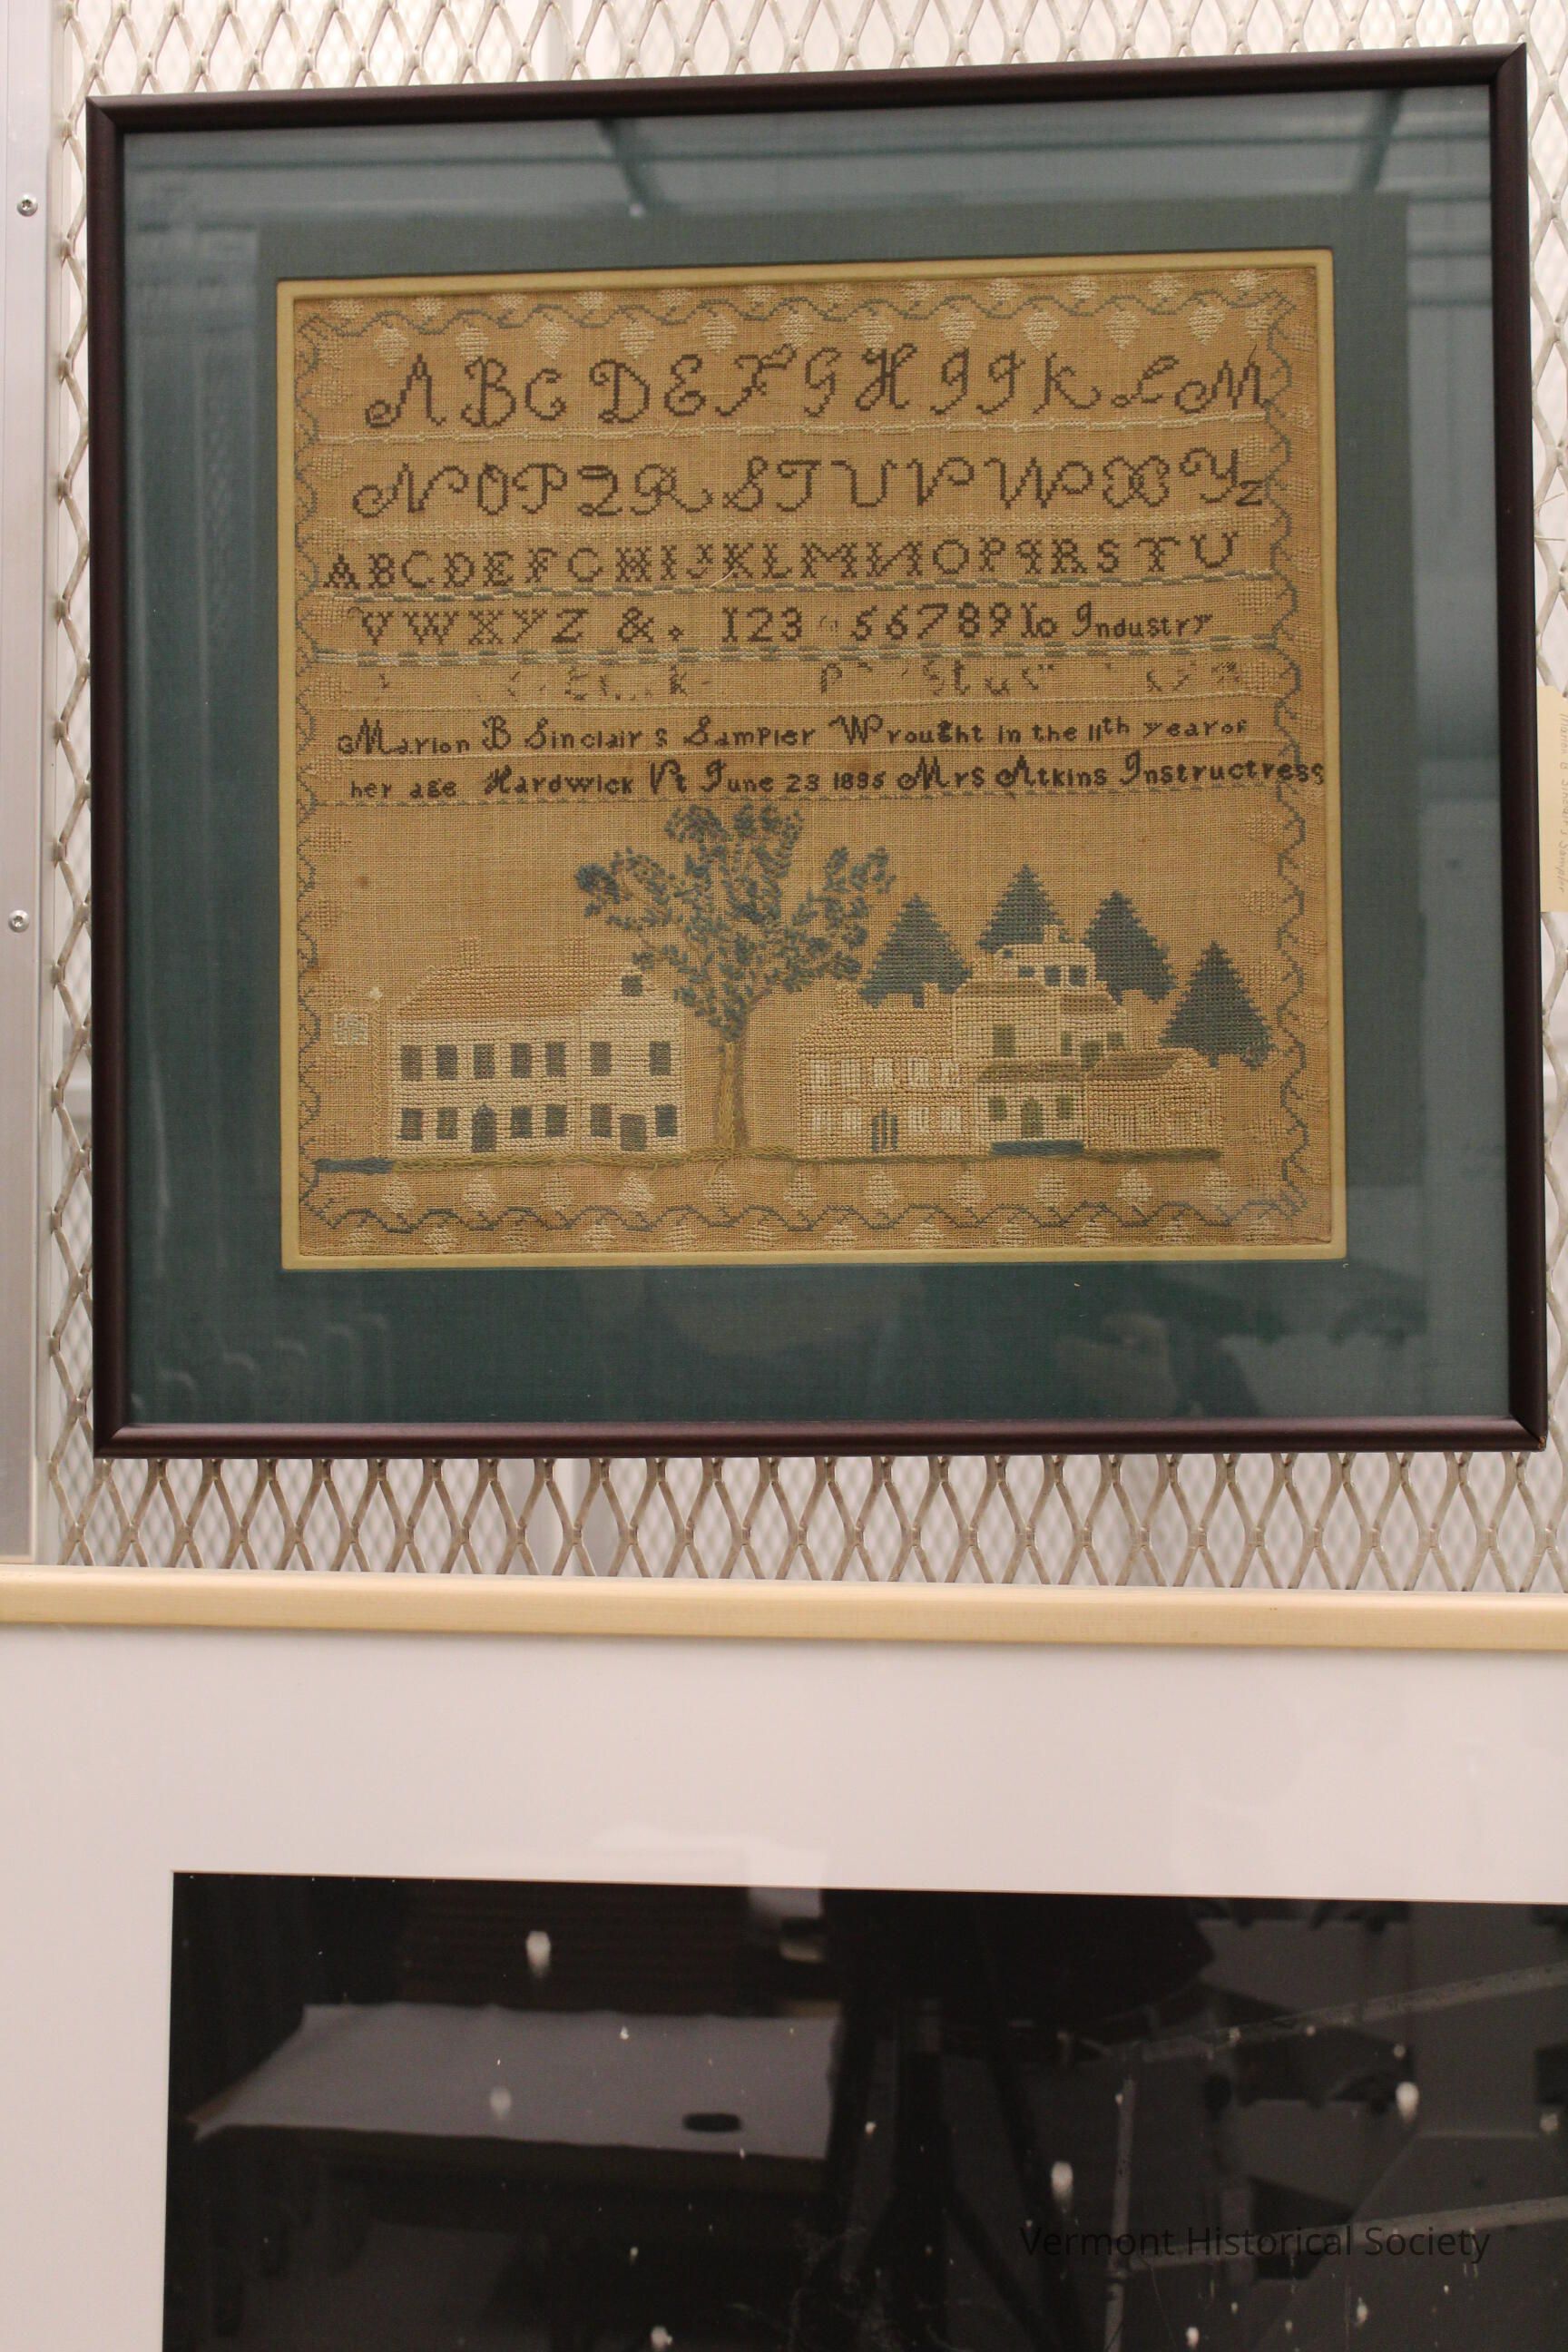 A B C D E F G H I J K L M
N O P Q R S T U V W X Y Z
A B C D E F G H I J K L M N O P Q R S T U
V W X Y Z & 1 2 3 5 6 7 8 9 10 Industry
Marion B Sinclair s Sampler Wrought in the 11th year of
her age Hardwick Vt June 23 1835 Mrs Atkins Instructress
Vermont Historical Society